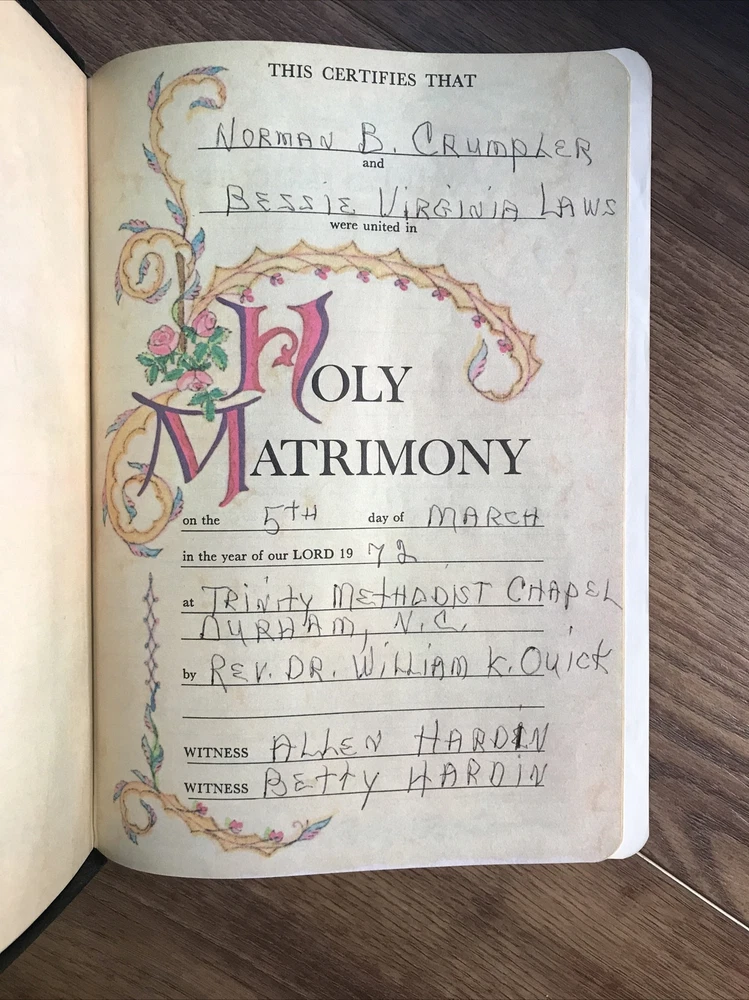 THIS CERTIFIES THAT
NORMAN B. CRUMPLER
and
BESSIE VIRGINIA LAWS
were united in
HOLY
MATRIMONY
on the 5TH day of MARCH
in the year of our LORD 19 72
at TRINITY METHODIST CHAPEL
DURHAM, N.C.
by REV. DR. WILLIAM K. QUICK
WITNESS ALLEN HARDIN
WITNESS BETTY HARDIN